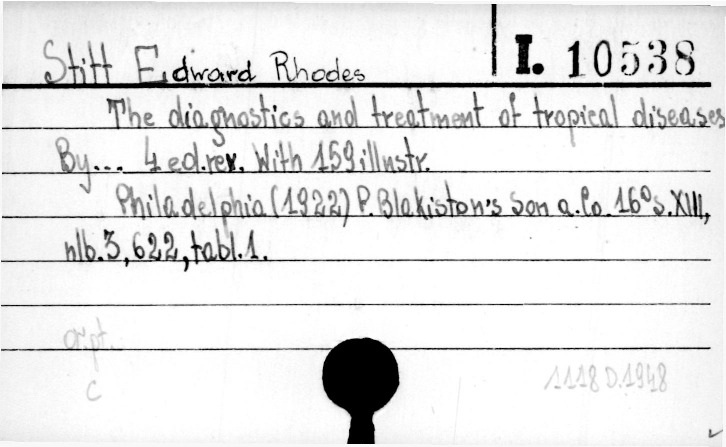 Stitt Edward Rhodes
I. 10538
The diagnostics and treatment of tropical diseases
By... 4 ed.rev. With 159 illustr.
Philadelphia (1922) P. Blakiston's Son a. Co. 16° s. XIII,
nlb. 3, 622, tabl. 1.
or.pt.
C
1118 D.1948